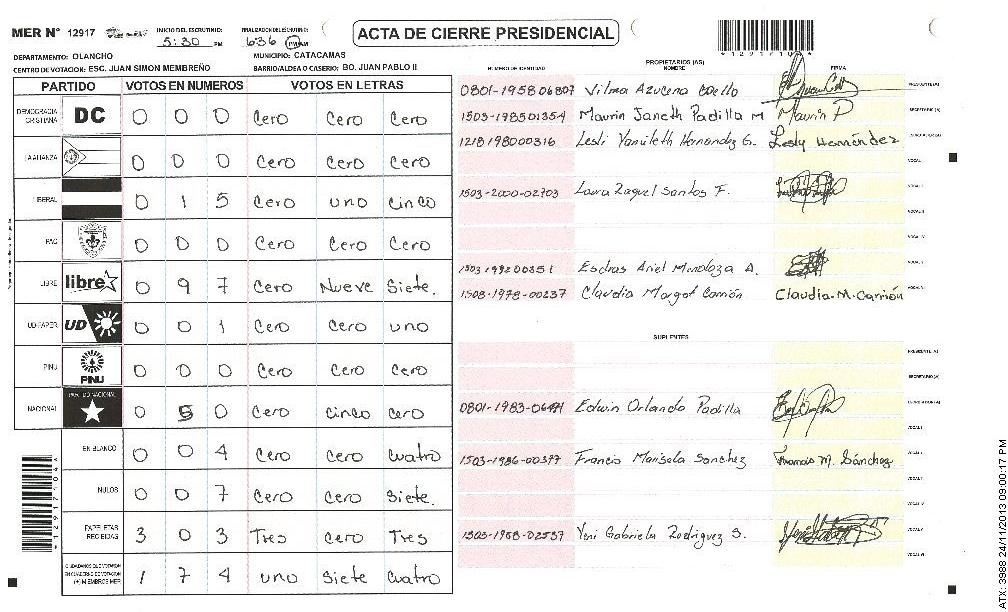 MER N° 12917
INICIO DEL ESCRUTINIO: 5:30 PM
FINALIZACION DEL ESCRUTINIO: 636 PM AM
ACTA DE CIERRE PRESIDENCIAL
DEPARTAMENTO: OLANCHO
MUNICIPIO: CATACAMAS
CENTRO DE VOTACION: ESC. JUAN SIMON MEMBREÑO
BARRIO/ALDEA O CASERIO: BO. JUAN PABLO II
PARTIDO VOTOS EN NUMEROS VOTOS EN LETRAS
DEMOCRACIA CRISTIANA DC 0 0 0 Cero Cero Cero
LA ALIANZA 0 0 0 Cero Cero Cero
LIBERAL 0 1 5 Cero uno Cinco
PAC 0 0 0 Cero Cero Cero
LIBRE libre 0 9 7 Cero Nueve Siete.
UD-FAPER UD 0 0 1 Cero Cero uno
PINU PINU 0 0 0 Cero Cero Cero
NACIONAL PARTIDO NACIONAL 0 5 0 Cero cinco cero
EN BLANCO 0 0 4 Cero Cero Cuatro
NULOS 0 0 7 Cero Cero Siete.
PAPELETAS RECIBIDAS 3 0 3 Tres Cero Tres
CIUDADANOS QUE VOTARON EN CUADERNO DE VOTACION (+) MIEMBROS MER 1 7 4 uno Siete Cuatro
*1291710*
PROPIETARIOS (AS)
NUMERO DE IDENTIDAD NOMBRE FIRMA
0801-1958 06807 Vilma Azucena Coello PRESIDENTE (A)
1503-198501354 Maurin Janeth Padilla M Maurin P SECRETARIO (A)
1218 198000316 Lesli Yamileth Hernandez G. Lesly Hernéndez ESCRUTADOR (A)
VOCAL I
1503-2000-02703 Laura Raquel Santos F.
1503 199200351 Esdras Ariel Mendoza A.
1508-1978-00237 Claudia Margot Carrión Claudia-M-Carrión
SUPLENTES
PRESIDENTE (A)
SECRETARIO (A)
0801-1983-06491 Edwin Orlando Padilla ESCRUTADOR (A)
1503-1986-00397 Francis Marisela Sanchez Francis M. Sánchez
1503-1988-02537 Yeni Gabriela Rodriguez S.
ATX: 3988 24/11/2013 09:00:17 PM